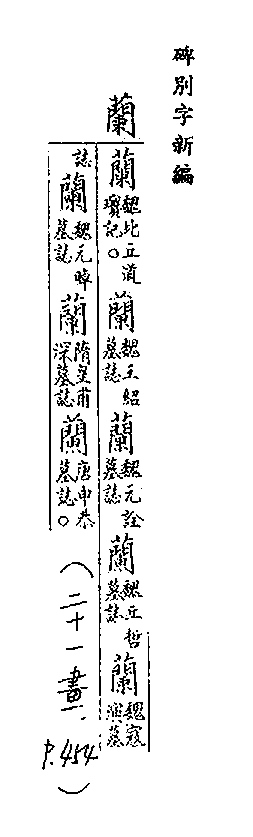 碑別字新編
蘭
蘭 魏比丘道瓊記○蘭 魏王紹墓誌 蘭 魏元詮墓誌 蘭 魏丘哲墓誌 蘭 魏寇演墓
誌 蘭 魏元暐墓誌 蘭 隋皇甫深墓誌 蘭 唐申恭墓誌○
(二十一畫、P.454)